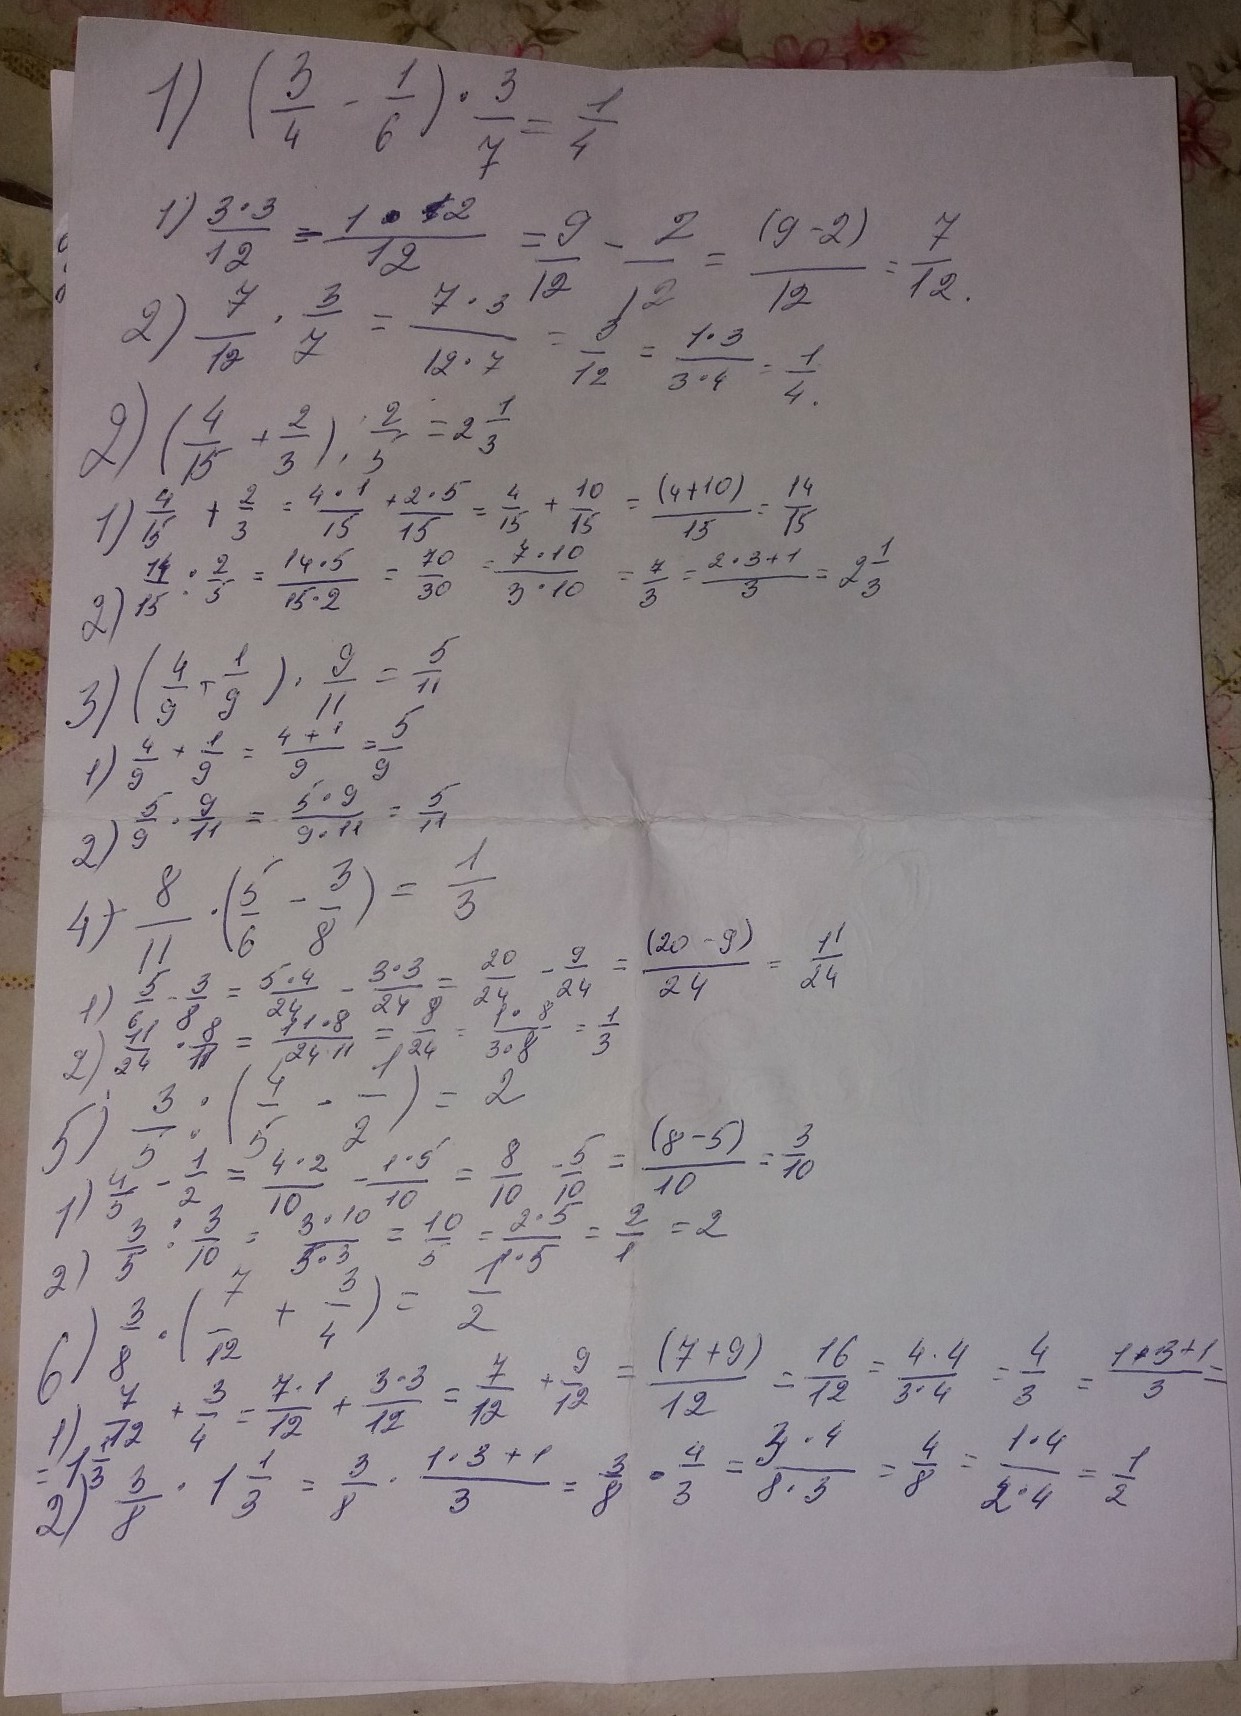 1) (3/4 - 1/6) · 3/7 = 1/4
1) 3·3/12 = 1·2/12 = 9/12 - 2/12 = (9-2)/12 = 7/12.
2) 7/12 · 3/7 = 7·3/12·7 = 3/12 = 1·3/3·4 = 1/4.
2) (4/15 + 2/3) : 2/5 = 2 1/3
1) 4/15 + 2/3 = 4·1/15 + 2·5/15 = 4/15 + 10/15 = (4+10)/15 = 14/15
2) 14/15 : 2/5 = 14·5/15·2 = 70/30 = 7·10/3·10 = 7/3 = 2·3+1/3 = 2 1/3
3) (4/9 + 1/9) · 9/11 = 5/11
1) 4/9 + 1/9 = 4+1/9 = 5/9
2) 5/9 · 9/11 = 5·9/9·11 = 5/11
4) 8/11 · (5/6 - 3/8) = 1/3
1) 5/6 - 3/8 = 5·4/24 - 3·3/24 = 20/24 - 9/24 = (20-9)/24 = 11/24
2) 11/24 · 8/11 = 11·8/24·11 = 8/24 = 1·8/3·8 = 1/3
5) 3/5 : (4/5 - 1/2) = 2
1) 4/5 - 1/2 = 4·2/10 - 1·5/10 = 8/10 - 5/10 = (8-5)/10 = 3/10
2) 3/5 : 3/10 = 3·10/5·3 = 10/5 = 2·5/1·5 = 2/1 = 2
6) 3/8 · (7/12 + 3/4) = 1/2
1) 7/12 + 3/4 = 7·1/12 + 3·3/12 = 7/12 + 9/12 = (7+9)/12 = 16/12 = 4·4/3·4 = 4/3 = 1·3+1/3 =
= 1 1/3
2) 3/8 · 1 1/3 = 3/8 · 1·3+1/3 = 3/8 · 4/3 = 3·4/8·3 = 4/8 = 1·4/2·4 = 1/2